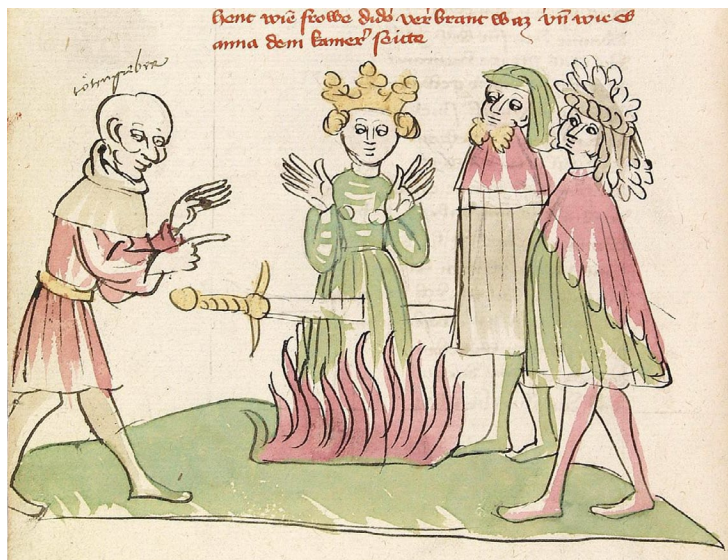 hent wie frowe dido verbrant waz vn̄ wie es
anna dem kamer᷑ seitte